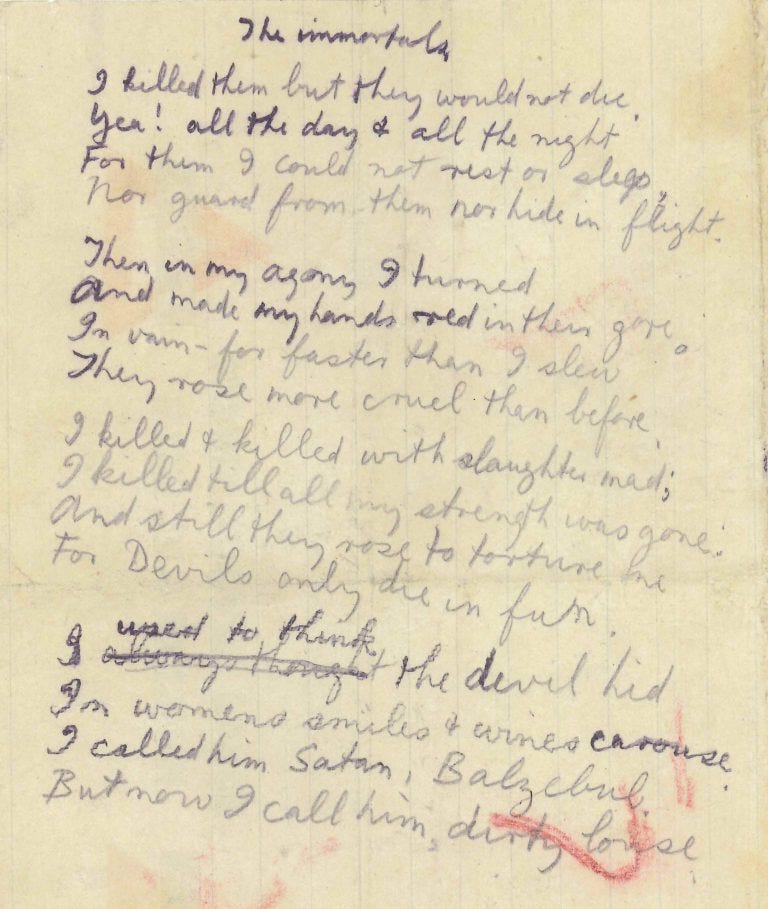 The immortals
I killed them but they would not die.
Yea! all the day & all the night
For them I could not rest or sleep,
Nor guard from them nor hide in flight.
Then in my agony I turned
And made my hands red in their gore.
In vain - for faster than I slew
They rose more cruel than before.
I killed & killed with slaughter mad;
I killed till all my strength was gone.
And still they rose to torture me
For Devils only die in fun.
used to think
I always thought the devil hid
In womens smiles & wines carouse.
I called him Satan, Balzebub.
But now I call him, dirty louse